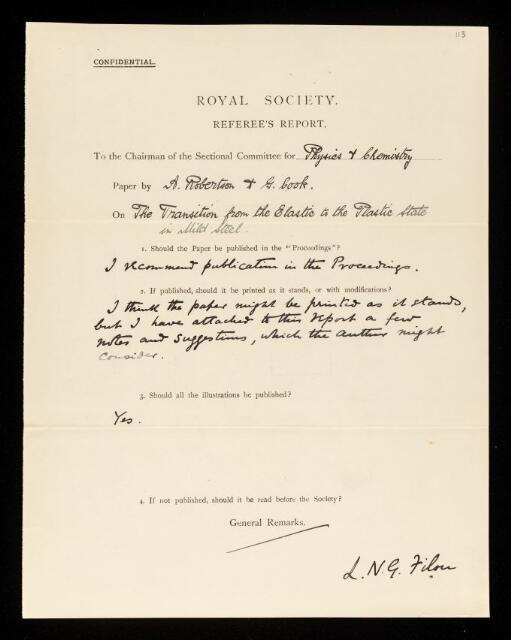 113
CONFIDENTIAL.
ROYAL SOCIETY.
REFEREE'S REPORT.
To the Chairman of the Sectional Committee for Physics & Chemistry
Paper by A. Robertson & G. Cook.
On The Transition from the Elastic to the Plastic State
in Mild Steel.
1. Should the Paper be published in the "Proceedings"?
I recommend publication in the Proceedings.
2. If published, should it be printed as it stands, or with modifications?
I think the paper might be printed as it stands,
but I have attached to this report a few
notes and suggestions, which the author might
consider.
3. Should all the illustrations be published?
Yes.
4. If not published, should it be read before the Society?
General Remarks.
L.N.G. Filon